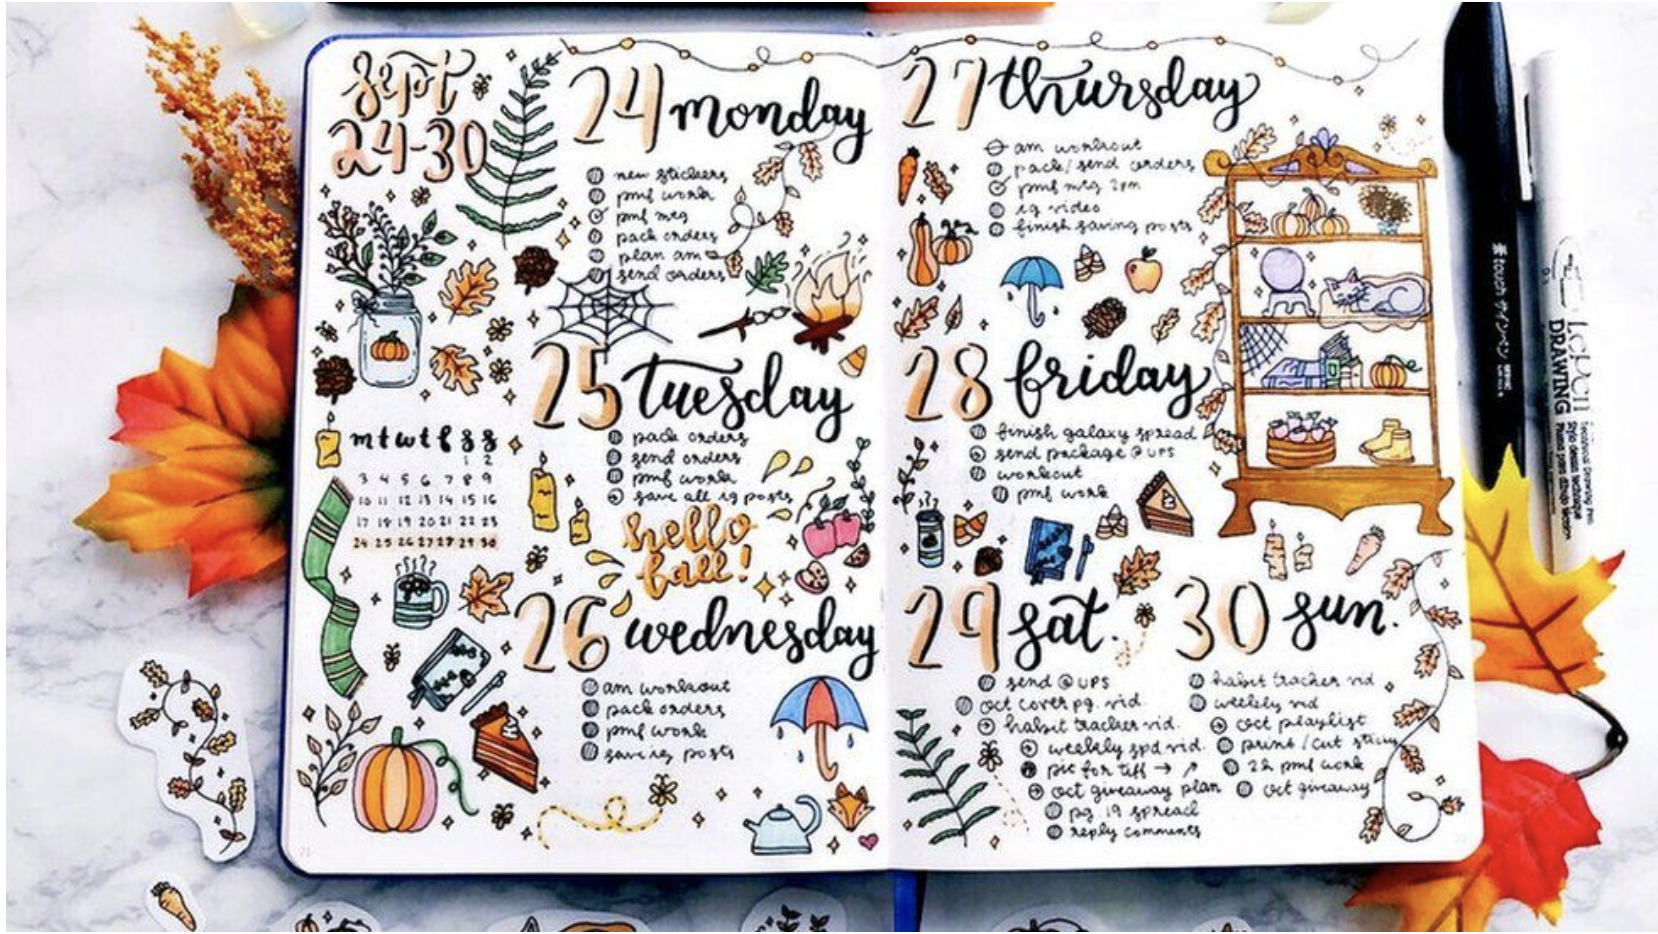 sept
24-30
m t w t f s s
1 2
3 4 5 6 7 8 9
10 11 12 13 14 15 16
17 18 19 20 21 22 23
24 25 26 27 28 29 30
24 monday
new stickers
pmf work
pmf mtg
pack orders
plan am
send orders
25 tuesday
pack orders
send orders
pmf work
save all ig posts
hello
fall!
26 wednesday
am workout
pack orders
pmf work
save ig posts
27 thursday
am workout
pack/send orders
pmf mtg 2pm
ig video
finish saving posts
28 friday
finish galaxy spread
send package @ UPS
workout
pmf work
29 sat.
send @ UPS
oct cover pg. vid.
habit tracker vid.
weekly spd vid.
pic for tiff → ↗
oct giveaway plan
pg. 19 spread
reply comments
30 sun.
habit tracker vid
weekly vid
oct playlist
print/cut
2h pmf work
oct giveaway
touch サインペン
LePen
DRAWING
Technical Drawing Pen